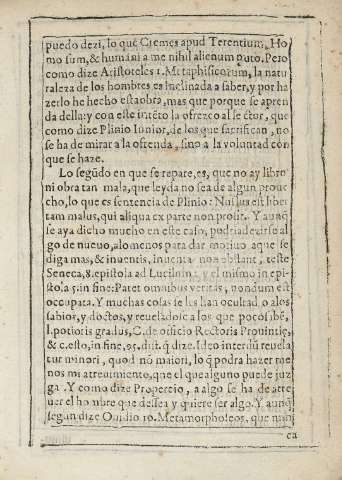 puedo dezi, lo que Cremes apud Terentium, Ho
mo sum, & humani a me nihil alienum puto. Pero
como dize Aristoteles 1. Metaphisicorum, la natu
raleza de los hombres es inclinada a saber, y por ha
zerlo he hecho esta obra, mas que porque se apren
da della: y con este intēto la ofrezco al lector, que
como dize Plinio Iunior, de los que sacrifican, no
se ha de mirar a la ofrenda, sino a la voluntad con
que se haze.
Lo segūdo en que se repare, es, que no ay libro
ni obra tan mala, que leyda no sea de algun proue
cho, lo que es sentencia de Plinio: Nullus est liber
tam malus, qui aliqua ex parte non prosit. Y aunq̄
se aya dicho mucho en este caso, podria dezirse al
go de nueuo, alomenos para dar motiuo a que se
diga mas, & inuentis, inuenta non obstant, teste
Seneca, 8. epistola ad Lucilium: y el mismo in epi-
stola in fine: Patet omnibus veritas, nondum est
occupata. Y muchas cosas se les han ocultado a los
sabios, y doctos, y reueladose a los que poco sabē,
l. potioris gradus, C. de officio Rectoris Prouintię,
& c. esto, in fine, 95. dist. q̄ dize. Ideo interdū reuela
tur minori, quod nō maiori, lo q̄ podra hazer me
nos mi atreuimiento, que el que alguno puede juz
ga. Y como dize Propercio, a algo se ha de atre
uer el hombre que dessea y quiere ser algo. Y aunq̄
segun dize Ouidio 10. Metamorphoseos, que nun
ca